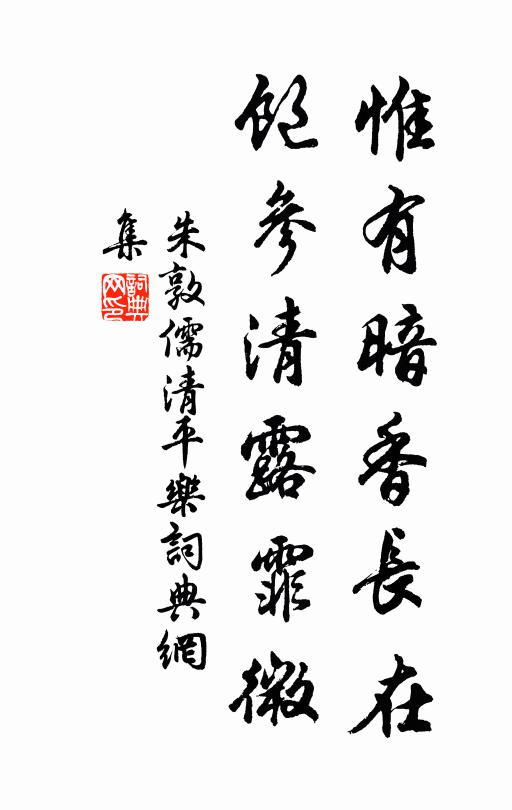 惟有暗香長在
飽參清露霏微
朱敦儒清平樂詞典網
集
詞典
网印